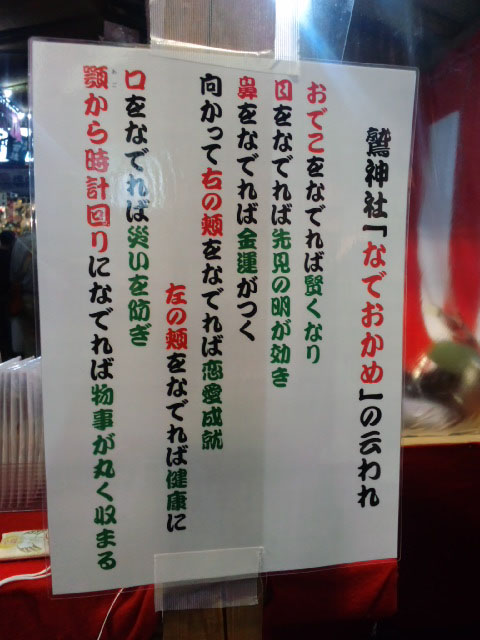 鷲神社「なでおかめ」の云われ
おでこをなでれば賢くなり
目をなでれば先見の明が効き
鼻をなでれば金運がつく
向かって右の頬をなでれば恋愛成就
左の頬をなでれば健康に
口をなでれば災いを防ぎ
顎から時計回りになでれば物事が丸く収まる
あご